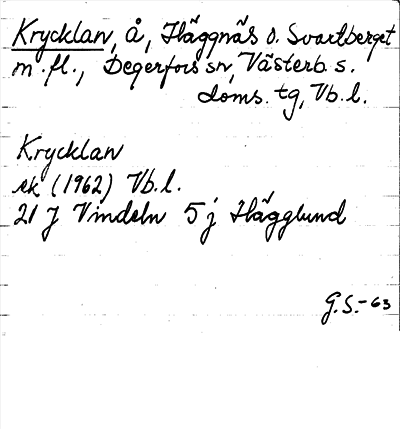 Krycklan, å, Häggnäs o. Svartberget
m.fl., Degerfors sn, Västerb. s.
doms. tg, Vb.l.
Krycklan
ek (1962) Vb.l.
21 J Vindeln 5 j Hägglund
G.S.-63